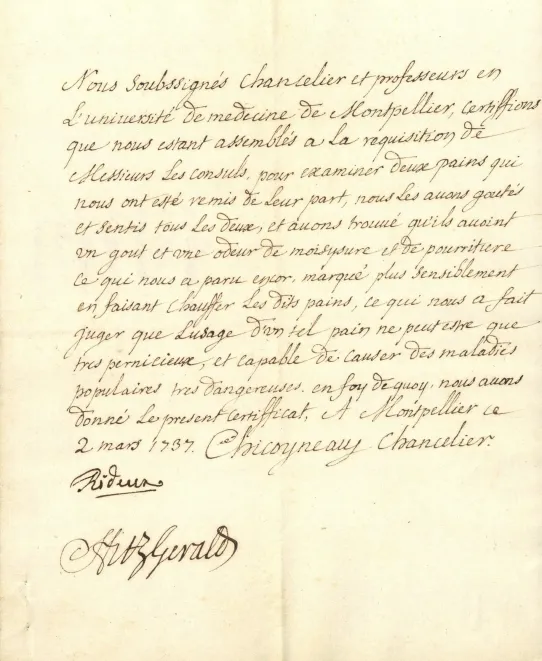 Nous soubssignés Chancelier et professeurs en
L'université de medecine de Montpellier, certiffions
que nous estant assemblés a La requisition de
Messieurs Les consuls, pour examiner deux pains qui
nous ont esté remis de Leur part, nous Les avons goutés
et sentis tous Les deux, et avons trouvé qu'ils avoint
vn gout et vne odeur de moisysure et de pourritiere
ce qui nous a paru encor, marqué plus sensiblement
en faisant chauffer Les dits pains, ce qui nous a fait
juger que L'usage d'vn tel pain ne peut estre que
tres pernicieux, et capable de causer des maladies
populaires tres dangereuses. en foy de quoy, nous avons
donné Le present certifficat, A Montpellier ce
2 mars 1737. Chicoyneau Chancelier.
Rideux
FitzGerald